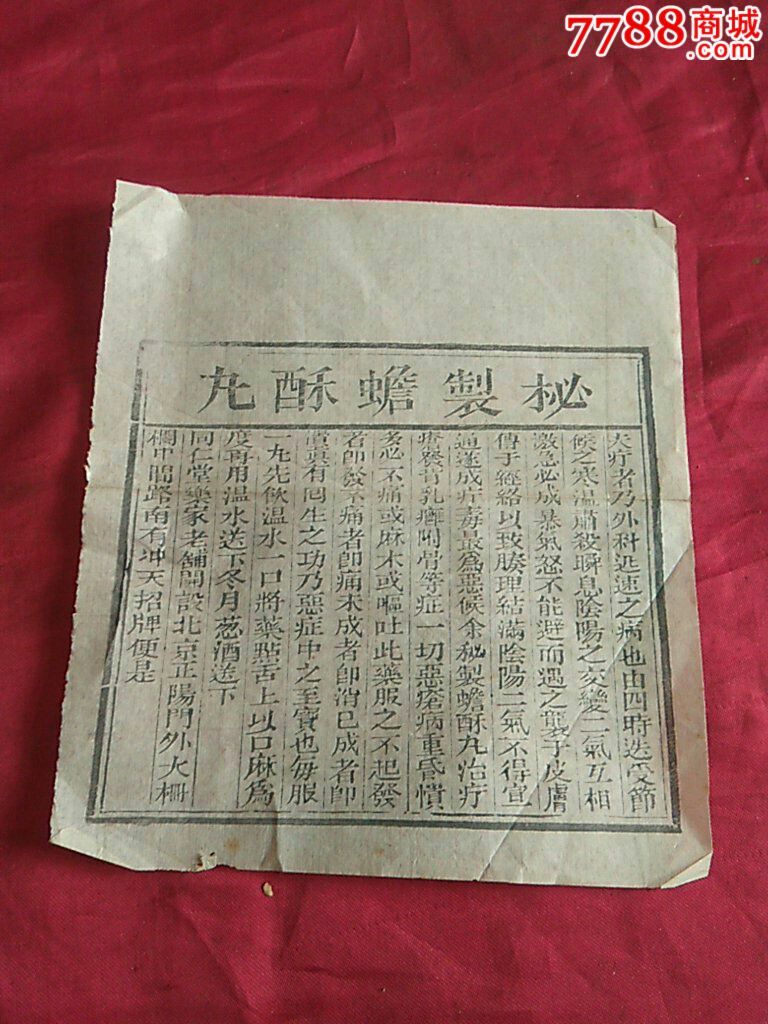 7788商城
.com
秘製蟾酥丸
夫疔者乃外科迅速之病也由四時迭受節
候之寒温肅殺瞬息陰陽之交變二氣互相
激急必成暴氣怒不能避而遇之襲于皮膚
傳于經絡以致腠理結滿陰陽二氣不得宣
通遂成疔毒最爲惡候余秘製蟾酥丸治疔
瘡發背乳癰附骨等症一切惡瘡病重昏憒
多必不痛或麻木或嘔吐此藥服之不起發
者即發不痛者即痛未成者即消已成者即
潰真有囘生之功乃惡症中之至寶也每服
一丸先飲温水一口將藥點舌上以口麻爲
度再用温水送下冬月葱酒送下
同仁堂樂家老舖開設北京正陽門外大柵
欄中間路南有冲天招牌便是